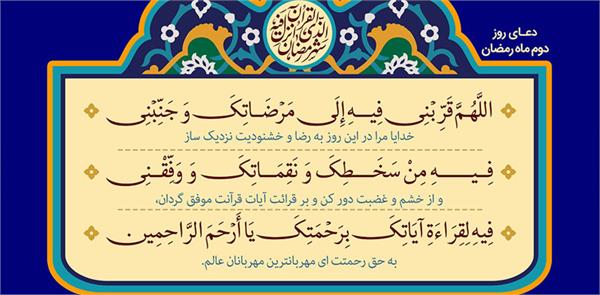 دعای روز
دوم ماه رمضان
شهر رمضان الذی أنزل فیه القرآن
اللَّهُمَّ قَرِّبْنِی فِیهِ إِلَی مَرْضَاتِکَ وَ جَنِّبْنِی
خدایا مرا در این روز به رضا و خشنودیت نزدیک ساز
فِیهِ مِنْ سَخَطِکَ وَ نَقِمَاتِکَ وَ وَفِّقْنِی
و از خشم و غضبت دور کن و بر قرائت آیات قرآنت موفق گردان،
فِیهِ لِقِرَاءَةِ آیَاتِکَ بِرَحْمَتِکَ یَا أَرْحَمَ الرَّاحِمِینَ
به حق رحمتت ای مهربانترین مهربانان عالم.